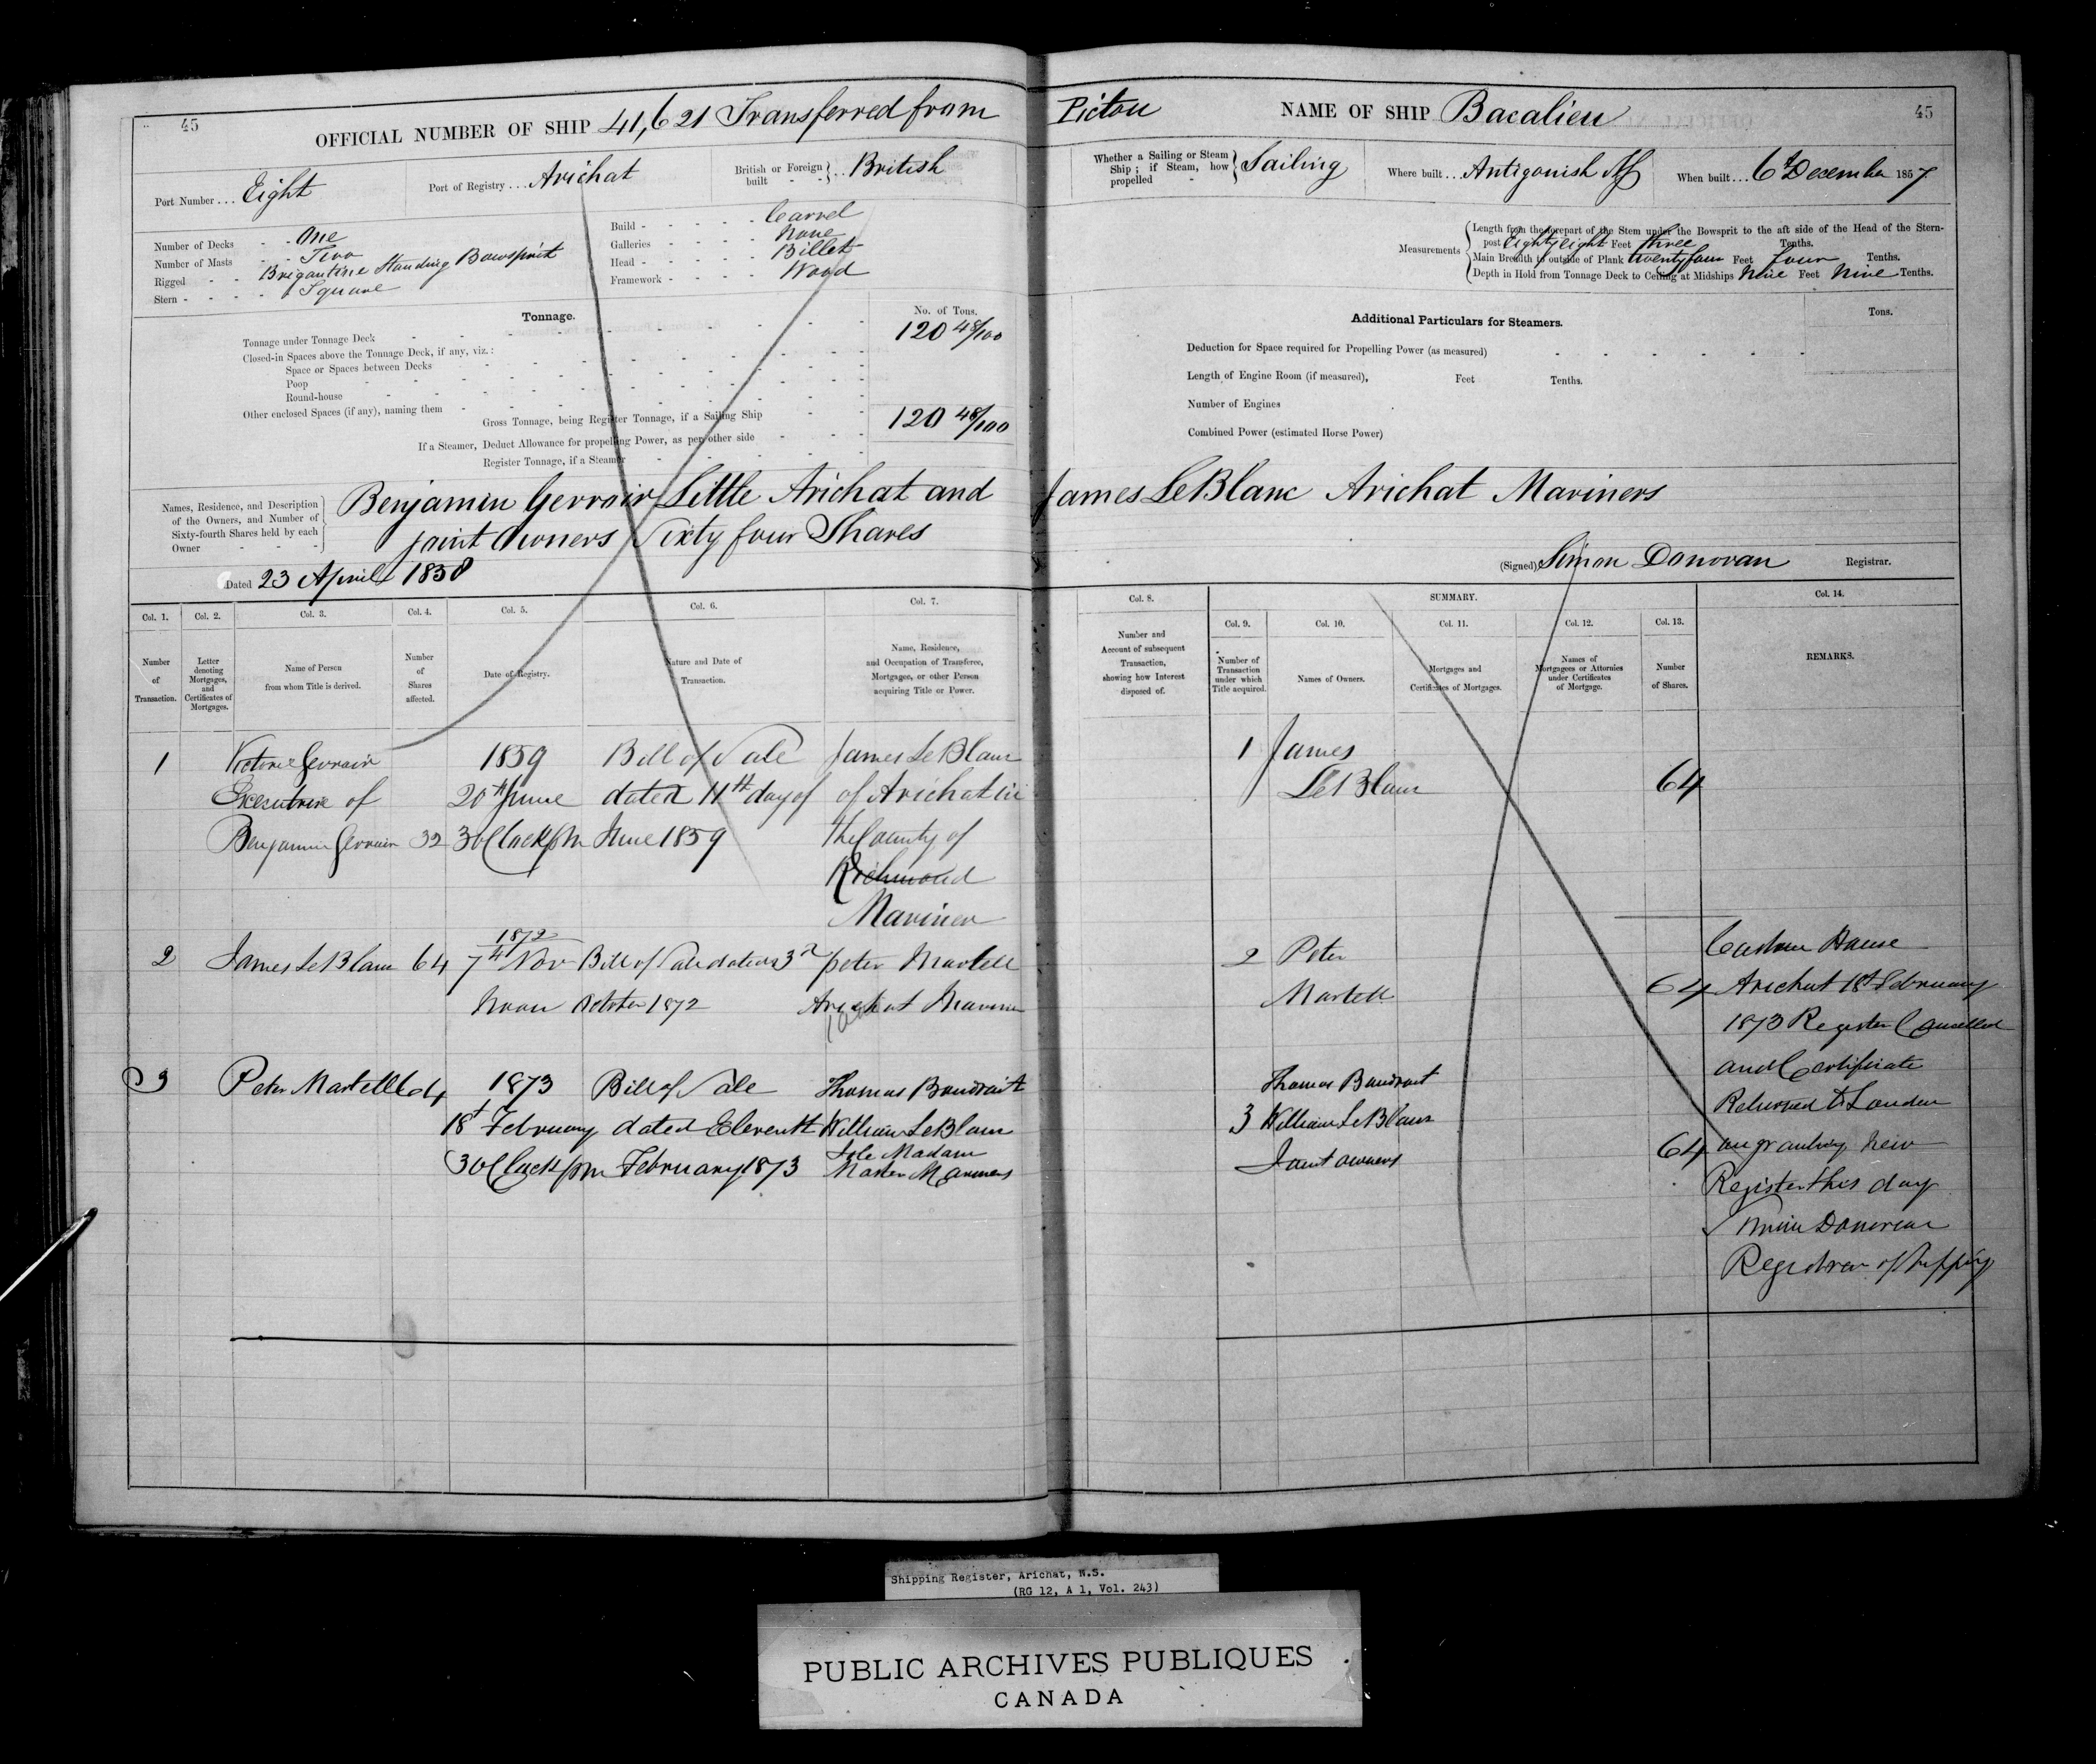 45
OFFICIAL NUMBER OF SHIP 41,621 Transferred from Pictou
NAME OF SHIP Bacalieu
45
Port Number ... Eight
Port of Registry ... Arichat
British or Foreign built - - } .. British
Whether a Sailing or Steam Ship ; if Steam, how propelled - } Sailing
Where built ... Antigonish NS
When built ... 6th December 1857
Number of Decks - - One
Number of Masts - - Two
Rigged - - Brigantine Standing Bowsprit
Stern - - - - Square
Build - - - - - Carvel
Galleries - - - - None
Head - - - - - Billet
Framework - - - - Wood
Measurements
Length from the forepart of the Stem under the Bowsprit to the aft side of the Head of the Stern-
post Eighty eight Feet three Tenths.
Main Breadth to outside of Plank twenty four Feet four Tenths.
Depth in Hold from Tonnage Deck to Ceiling at Midships Nine Feet Nine Tenths.
Tonnage.
No. of Tons.
Tonnage under Tonnage Deck 120 48/100
Closed-in Spaces above the Tonnage Deck, if any, viz. :
Space or Spaces between Decks
Poop
Round-house
Other enclosed Spaces (if any), naming them
Gross Tonnage, being Register Tonnage, if a Sailing Ship 120 48/100
If a Steamer, Deduct Allowance for propelling Power, as per other side
Register Tonnage, if a Steamer
Additional Particulars for Steamers.
Tons.
Deduction for Space required for Propelling Power (as measured)
Length of Engine Room (if measured), Feet Tenths.
Number of Engines
Combined Power (estimated Horse Power)
Names, Residence, and Description
of the Owners, and Number of
Sixty-fourth Shares held by each
Owner - - -
Benjamin Gerroir Little Arichat and James LeBlanc Arichat Mariners
joint Owners Sixty four Shares
Dated 23 April 1858
(Signed) Simon Donovan Registrar.
Col. 1.
Number
of
Transaction.
Col. 2.
Letter
denoting
Mortgages,
and
Certificates of
Mortgages.
Col. 3.
Name of Person
from whom Title is derived.
Col. 4.
Number
of
Shares
affected.
Col. 5.
Date of Registry.
Col. 6.
Nature and Date of
Transaction.
Col. 7.
Name, Residence,
and Occupation of Transferee,
Mortgagee, or other Person
acquiring Title or Power.
Col. 8.
Number and
Account of subsequent
Transaction,
showing how Interest
disposed of.
SUMMARY.
Col. 9.
Number of
Transaction
under which
Title acquired.
Col. 10.
Names of Owners.
Col. 11.
Mortgages and
Certificates of Mortgages.
Col. 12.
Names of
Mortgagees or Attornies
under Certificates
of Mortgage.
Col. 13.
Number
of Shares.
Col. 14.
REMARKS.
1 Gerroir 1859 Bill of Sale James LeBlanc
Executrix of 20th June dated 11th day of of Arichat in
Benjamin Gerroir 32 3 OClock pm June 1859 the County of
Richmond
Mariner
1 James
LeBlanc 64
1872
2 James LeBlanc 64 7th Nov Bill of Sale dated 3rd Peter Martell
Noon October 1872 Arichat Mariner
2 Peter
Martell 64
3 Peter Martell 64 1873 Bill of Sale Thomas Boudroit
18th February dated Eleventh William LeBlanc
3 OClock pm February 1873 Isle Madam
Master Mariners
Thomas Boudroit
3 William LeBlanc
Joint owners 64
Custom House
Arichat 18th February
1873 Register Cancelled
and Certificate
Returned to London
on granting New
Register this day
Simon Donovan
Registrar of Shipping
Shipping Register, Arichat, N.S.
(RG 12, A 1, Vol. 243)
PUBLIC ARCHIVES PUBLIQUES
CANADA